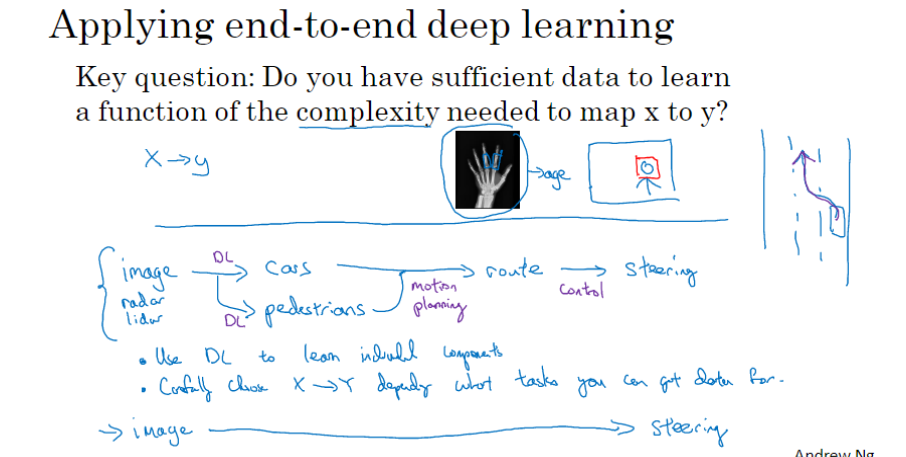 Applying end-to-end deep learning
Key question: Do you have sufficient data to learn
a function of the complexity needed to map x to y?
X → y
→ age
image DL → cars → route → steering
radar
lidar
DL → pedestrians
motion planning
control
• Use DL to learn individual components
• Carefully choose X → Y depending what tasks you can get data for.
→ image → steering
Andrew Ng